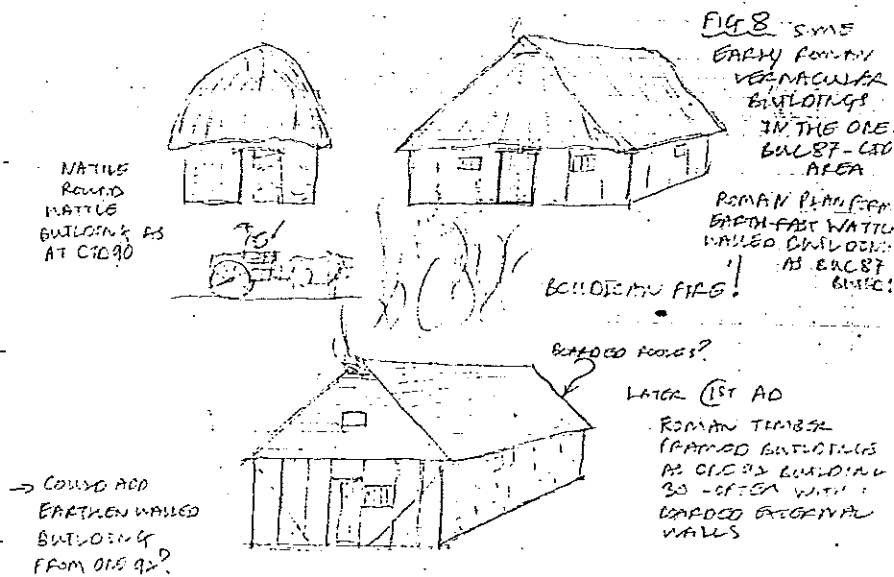 FIG 8 SOME
EARLY ROMAN
VERNACULAR
BUILDINGS
IN THE ONE
BUC87-CID
AREA
NATIVE
ROUND
WATTLE
BUILDING AS
AT CID90
ROMAN PLAN FORM
EARTH-FAST WATTLE
WALLED BUILDING
AS BUC87
BOUDICAN FIRE!
BOARDED ROOFS?
LATER 1ST AD
ROMAN TIMBER
FRAMED BUILDINGS
AS ONE 92 BUILDING
30 - OFTEN WITH
BOARDED EXTERNAL
WALLS
→ COULD ADD
EARTHEN WALLED
BUILDING
FROM ONE 92?